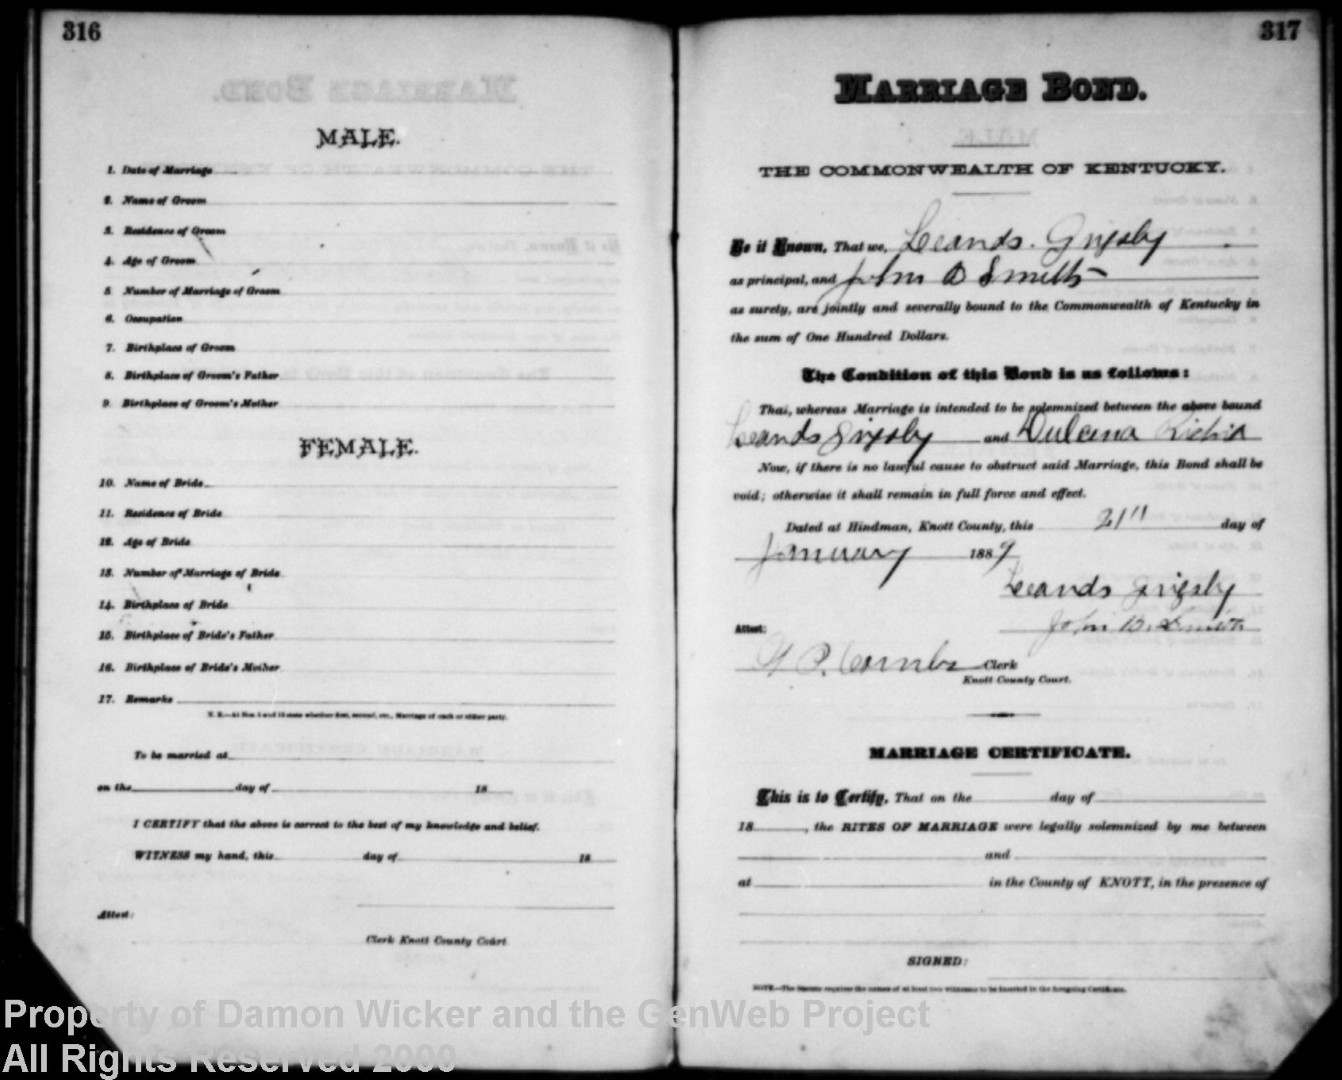 316
MALE.
1. Date of Marriage
2. Name of Groom
3. Residence of Groom
4. Age of Groom
5. Number of Marriage of Groom
6. Occupation
7. Birthplace of Groom
8. Birthplace of Groom's Father
9. Birthplace of Groom's Mother
FEMALE.
10. Name of Bride
11. Residence of Bride
12. Age of Bride
13. Number of Marriage of Bride
14. Birthplace of Bride
15. Birthplace of Bride's Father
16. Birthplace of Bride's Mother
17. Remarks
N. B.—At Nos. 5 and 13 state whether first, second, etc., Marriage of each or either party.
To be married at
on the day of 18
I CERTIFY that the above is correct to the best of my knowledge and belief.
WITNESS my hand, this day of 18
Attest:
Clerk Knott County Court
317
MARRIAGE BOND.
THE COMMONWEALTH OF KENTUCKY.
Be it Known, That we, Leands. Grigsby
as principal, and John B Smith
as surety, are jointly and severally bound to the Commonwealth of Kentucky in
the sum of One Hundred Dollars.
The Condition of this Bond is as follows:
That, whereas Marriage is intended to be solemnized between the above bound
Leands Grigsby and Dulcena
Now, if there is no lawful cause to obstruct said Marriage, this Bond shall be
void; otherwise it shall remain in full force and effect.
Dated at Hindman, Knott County, this 21" day of
January 1889
Leands Grigsby
Attest: John B. Smith
P. Combs Clerk
Knott County Court.
MARRIAGE CERTIFICATE.
This is to Certify, That on the day of
18 , the RITES OF MARRIAGE were legally solemnized by me between
and
at in the County of KNOTT, in the presence of
SIGNED:
NOTE.—The Statute requires the names of at least two witnesses to be inserted in the foregoing Certificate.
Property of Damon Wicker and the GenWeb Project
All Rights Reserved 2000